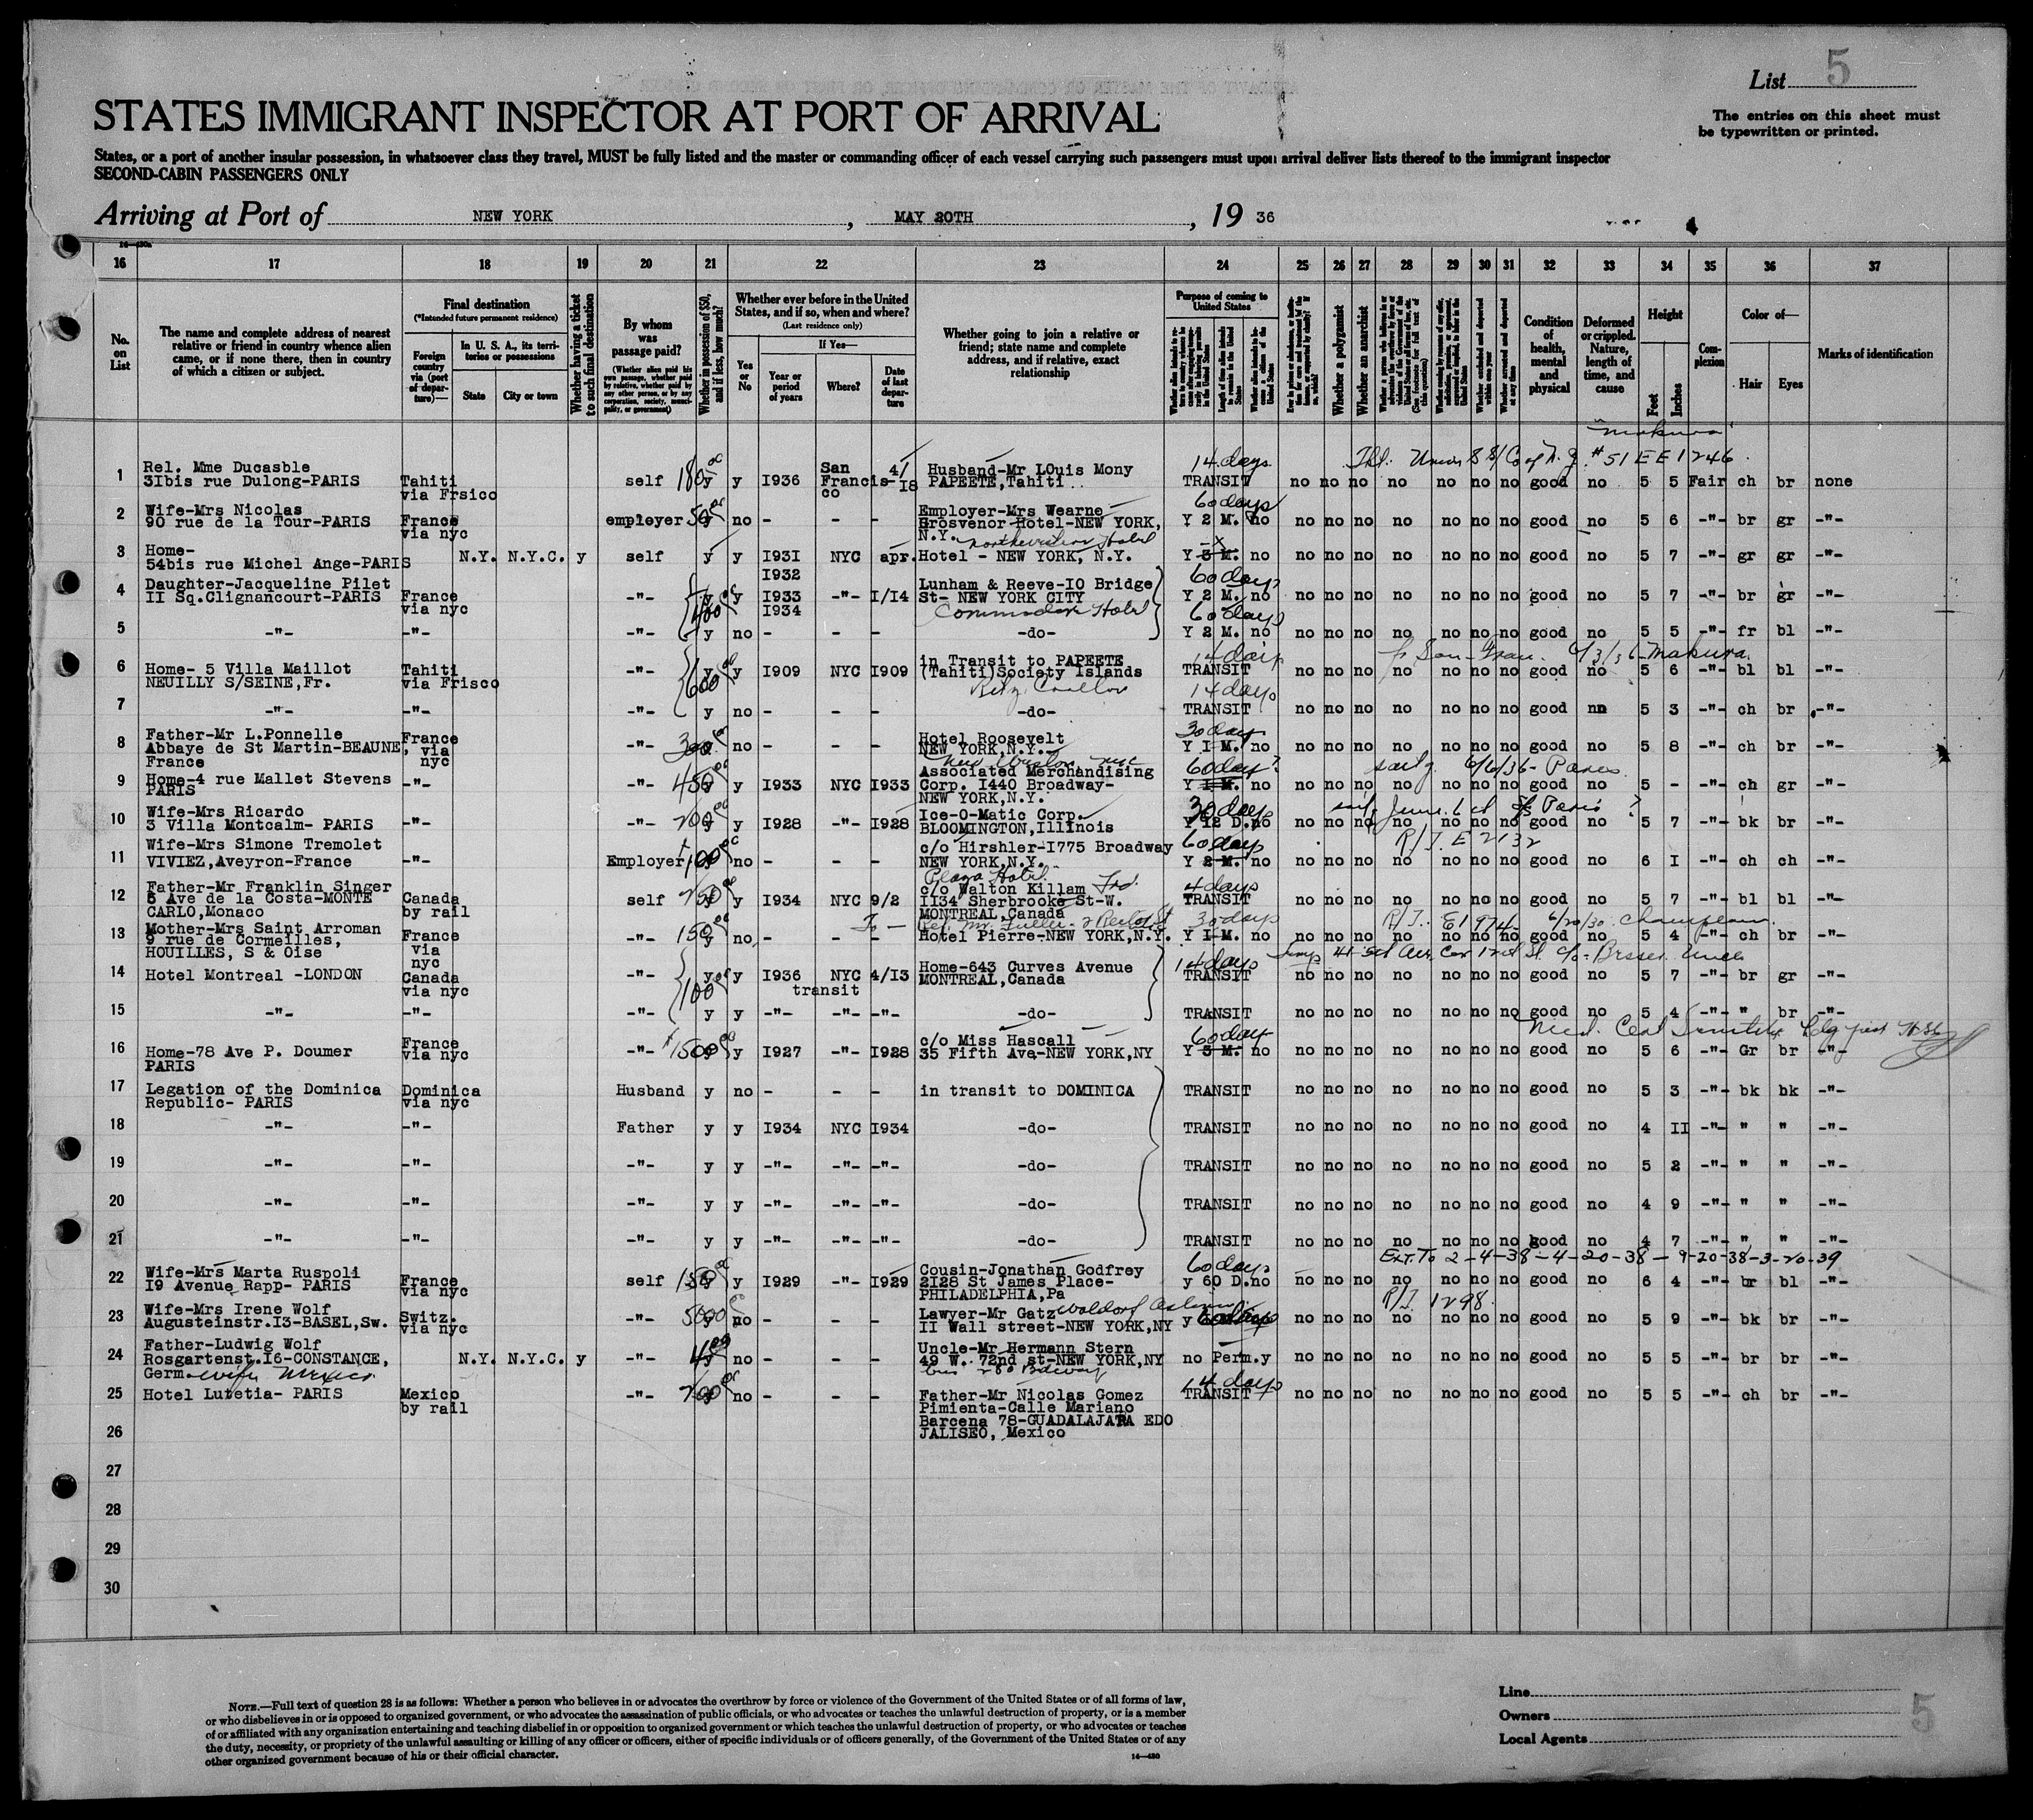 List 5
The entries on this sheet must
be typewritten or printed.
STATES IMMIGRANT INSPECTOR AT PORT OF ARRIVAL
States, or a port of another insular possession, in whatsoever class they travel, MUST be fully listed and the master or commanding officer of each vessel carrying such passengers must upon arrival deliver lists thereof to the immigrant inspector
SECOND-CABIN PASSENGERS ONLY
Arriving at Port of NEW YORK, MAY 20TH, 19 36
16 17 18 19 20 21 22 23 24 25 26 27 28 29 30 31 32 33 34 35 36 37
No. on List
The name and complete address of nearest relative or friend in country whence alien came, or if none there, then in country of which a citizen or subject.
Final destination
(*Intended future permanent residence)
Foreign country via (port of departure)—
In U. S. A., its territories or possessions
State
City or town
Whether having a ticket to such final destination
By whom was passage paid?
(Whether alien paid his own passage, whether paid by relative, whether paid by any other person, or by any corporation, society, municipality, or government)
Whether in possession of $50, and if less, how much?
Whether ever before in the United States, and if so, when and where?
(Last residence only)
Yes or No
If Yes—
Year or period of years
Where?
Date of last departure
Whether going to join a relative or friend; state name and complete address, and if relative, exact relationship
Purpose of coming to United States
Whether a polygamist
Whether an anarchist
Condition of health, mental and physical
Deformed or crippled. Nature, length of time, and cause
Height
Feet
Inches
Complexion
Color of—
Hair
Eyes
Marks of identification
"Makura"
1 Rel. Mme Ducasble 3Ibis rue Dulong-PARIS Tahiti via Frsico self 180 y y I936 San Francisco 4/I8 Husband-Mr LOuis Mony PAPEETE,Tahiti 14 days TRANSIT no no no no no no no good no 5 5 Fair ch br none
#51 EE1246
2 Wife-Mrs Nicolas 90 rue de la Tour-PARIS France via nyc employer 50 y no - - - Employer-Mrs Wearne Grosvenor Hotel-NEW YORK, N.Y. 60 days Y 2 M. no no no no no no no no good no 5 6 -"- br gr -"-
3 Home- 54bis rue Michel Ange-PARIS N.Y. N.Y.C. y self y y I93I NYC apr. Hotel - NEW YORK, N.Y. Y 3 M. no no no no no no no no good no 5 7 -"- gr gr -"-
4 Daughter-Jacqueline Pilet II Sq.Clignancourt-PARIS France via nyc -"- 400 y y I932 I933 I934 -"- I/I4 Lunham & Reeve-IO Bridge St- NEW YORK CITY Commodore Hotel 60 days Y 2 M. no no no no no no no no good no 5 7 -"- br gr -"-
5 -"- -"- -"- y no - - - -do- 60 days Y 2 M. no no no no no no no no good no 5 5 -"- fr bl -"-
6 Home- 5 Villa Maillot NEUILLY S/SEINE,Fr. Tahiti via Frisco -"- 600 y y I909 NYC I909 in Transit to PAPEETE (Tahiti)Society Islands 14 days TRANSIT no no no no no no no good no 5 6 -"- bl bl -"-
fr San Fran. 6/3/36 Makura
7 -"- -"- -"- y no - - - Ritz Carlton -do- 14 days TRANSIT no no no no no no no good nn 5 3 -"- ch br -"-
8 Father-Mr L.Ponnelle Abbaye de St Martin-BEAUNE, France France via nyc -"- 300 no - - - Hotel Roosevelt NEW YORK,N.Y. 30 days Y I M. no no no no no no no no good no 5 8 -"- ch br -"-
9 Home-4 rue Mallet Stevens PARIS -"- -"- 450 y I933 NYC I933 Associated Merchandising Corp. I440 Broadway- NEW YORK,N.Y. 60 days? Y I M. no no no no no no no no good no 5 - -"- ch gr -"-
6/6/36 - Paris
10 Wife-Mrs Ricardo 3 Villa Montcalm- PARIS -"- -"- 200 y y I928 -"- I928 Ice-O-Matic Corp. BLOOMINGTON,Illinois 30 days Y I2 D. no no no no no no no no good no 5 7 -"- bk br -"-
11 Wife-Mrs Simone Tremolet VIVIEZ,Aveyron-France -"- Employer 100 no - - - c/o Hirshler-I775 Broadway NEW YORK,N.Y. 60 days Y 2 M. no no no no no no no no good no 6 I -"- ch ch -"-
R/J. E 2132
12 Father-Mr Franklin Singer 5 Ave de la Costa-MONTE CARLO,Monaco Canada by rail self 250 y I934 NYC 9/2 Plaza Hotel c/o Walton Killam II34 Sherbrooke St-W. MONTREAL,Canada 4 days TRANSIT no no no no no no no good no 5 7 -"- bl bl -"-
13 Mother-Mrs Saint Arroman 9 rue de Cormeilles, HOUILLES, S & Oise France via nyc -"- 150 no - - - Hotel Pierre-NEW YORK,N.Y. 30 days Y I M. no no no no no no no no good no 5 4 -"- ch br -"-
R/J. E1974 6/20/36 Champlain
14 Hotel Montreal -LONDON Canada via nyc -"- 100 y y I936 NYC transit 4/I3 Home-643 Curves Avenue MONTREAL,Canada 14 days TRANSIT no no no no no no no good no 5 7 -"- br gr -"-
15 -"- -"- -"- y y -"- -"- -"- -do- TRANSIT no no no no no no no good no 5 4 -"- " br -"-
16 Home-78 Ave P. Doumer PARIS France via nyc -"- 1500 y I927 -"- I928 c/o Miss Hascall 35 Fifth Ave-NEW YORK,NY 60 days Y 3 M. no no no no no no no no good no 5 6 -"- Gr br -"-
17 Legation of the Dominica Republic- PARIS Dominica via nyc Husband y no - - - in transit to DOMINICA TRANSIT no no no no no no no good no 5 3 -"- bk bk -"-
18 -"- -"- Father y y I934 NYC I934 -do- TRANSIT no no no no no no no good no 4 II -"- " " -"-
19 -"- -"- -"- y y -"- -"- -"- -do- TRANSIT no no no no no no no good no 5 2 -"- " " -"-
20 -"- -"- -"- y y -"- -"- -"- -do- TRANSIT no no no no no no no good no 4 9 -"- " " -"-
21 -"- -"- -"- y y -"- -"- -"- -do- TRANSIT no no no no no no no good no 4 7 -"- " " -"-
Ext. To 2-4-38-4-20-38-9-20-38-3-20-39
22 Wife-Mrs Marta Ruspoli I9 Avenue Rapp- PARIS France via nyc self 150 y I929 -"- I929 Cousin-Jonathan Godfrey 2I28 St James Place- PHILADELPHIA,Pa 60 days y 60 D.no no no no no no no no good no 6 4 -"- br bl -"-
R/J. 1298
23 Wife-Mrs Irene Wolf Augusteinstr.I3-BASEL,Sw. Switz. via nyc -"- 5000 no - - - Lawyer-Mr Gatz Waldorf Astoria II Wall street-NEW YORK,NY y 60 days no no no no no no no good no 5 9 -"- bk br -"-
24 Father-Ludwig Wolf Rosgartenst.I6-CONSTANCE, Germ. N.Y. N.Y.C. y -"- 400 no - - - Uncle-Mr Hermann Stern 49 W. 72nd st-NEW YORK,NY no Perm.y no no no no no no no good no 5 5 -"- br br -"-
wife Mexico
25 Hotel Lutetia- PARIS Mexico by rail -"- 200 no - - - Father-Mr Nicolas Gomez Pimienta-Calle Mariano Barcena 78-GUADALAJARA EDO JALISEO, Mexico 14 days TRANSIT no no no no no no no good no 5 5 -"- ch br -"-
26
27
28
29
30
NOTE.—Full text of question 28 is as follows: Whether a person who believes in or advocates the overthrow by force or violence of the Government of the United States or of all forms of law,
or who disbelieves in or is opposed to organized government, or who advocates the assassination of public officials, or who advocates or teaches the unlawful destruction of property, or is a member
of or affiliated with any organization entertaining and teaching disbelief in or opposition to organized government or which teaches the unlawful destruction of property, or who advocates or teaches
the duty, necessity, or propriety of the unlawful assaulting or killing of any officer or officers, either of specific individuals or of officers generally, of the Government of the United States or of any
other organized government because of his or their official character.
14—430
Line
Owners
Local Agents
5